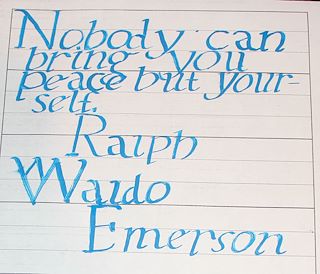 Nobody can
bring you
peace but your-
self.
Ralph
Waldo
Emerson